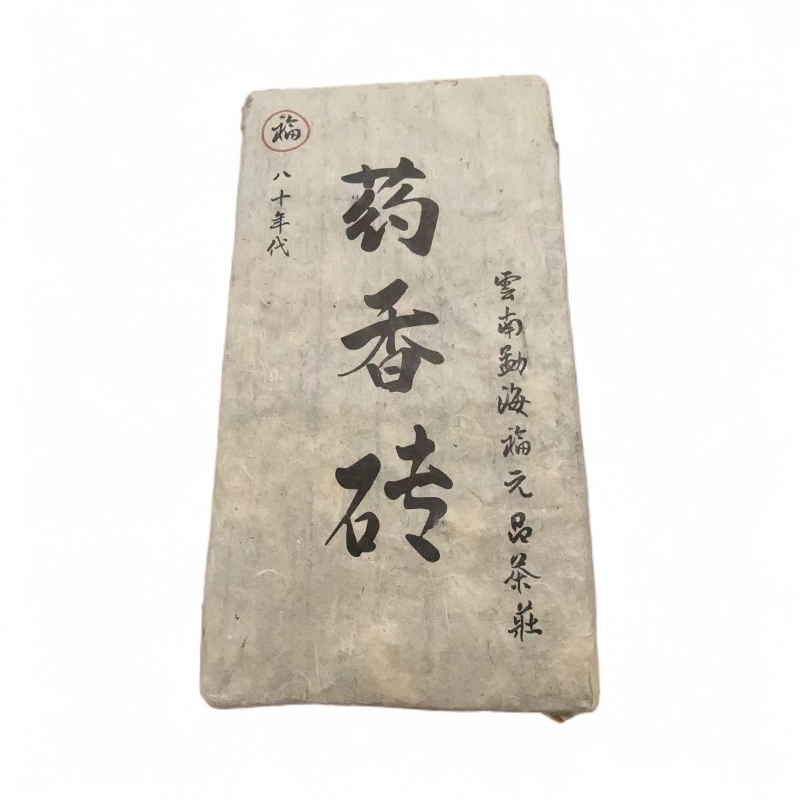 福
八十年代
药香砖
雲南勐海福元品茶莊